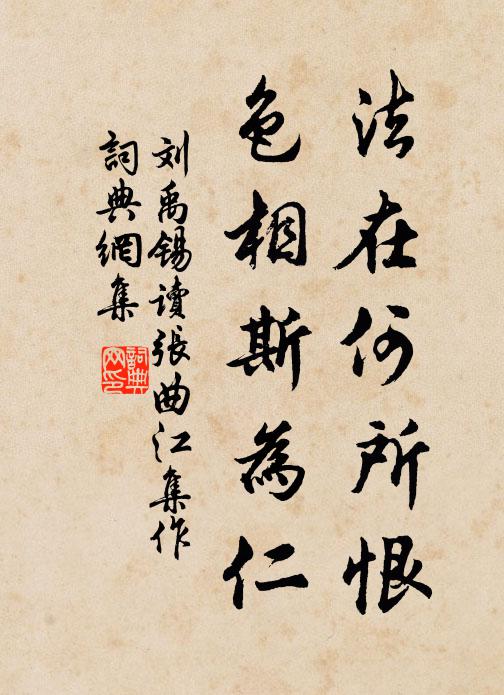 法在何所恨
色相斯為仁
刘禹锡讀張曲江集作
詞典網集
詞典网印